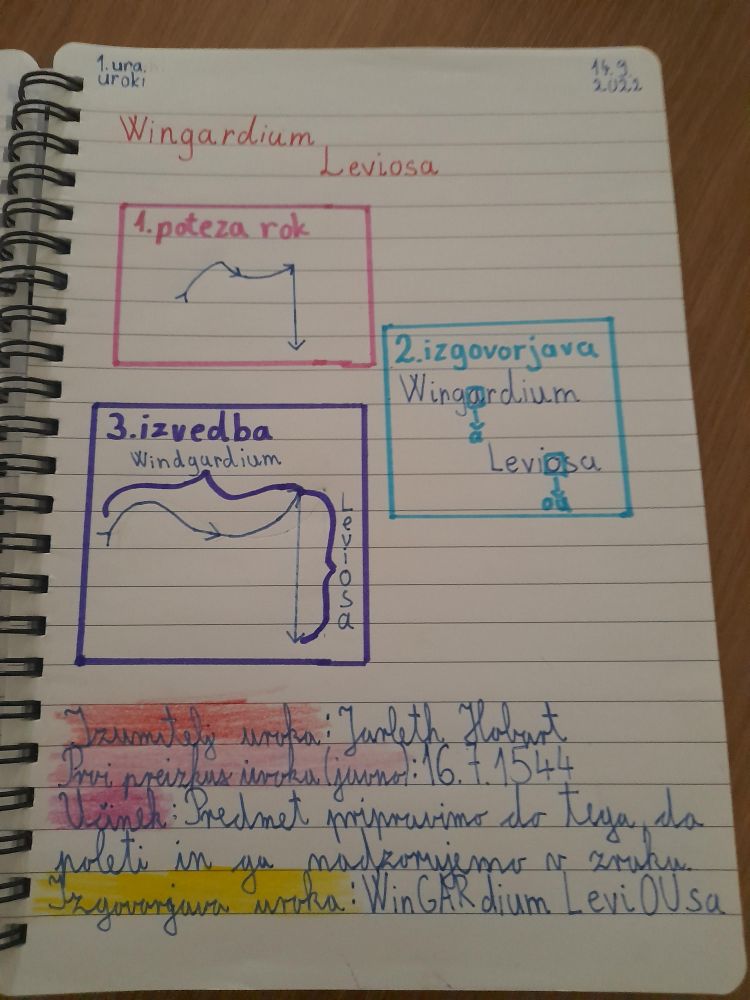 1. ura.
uroki
14.9.
2022
Wingardium
Leviosa
1. poteza rok
2. izgovorjava
Wingardium
a
Leviosa
ou
3. izvedba
Windgardium
Leviosa
Izumitelj uroka: Jarleth Hobart
Prvi preizkus uroka (javno): 16.7.1544
Učinek: Predmet pripravimo do tega, da
poleti in ga nadzorujemo v zraku.
Izgovorjava uroka: WinGARdium LeviOUsa